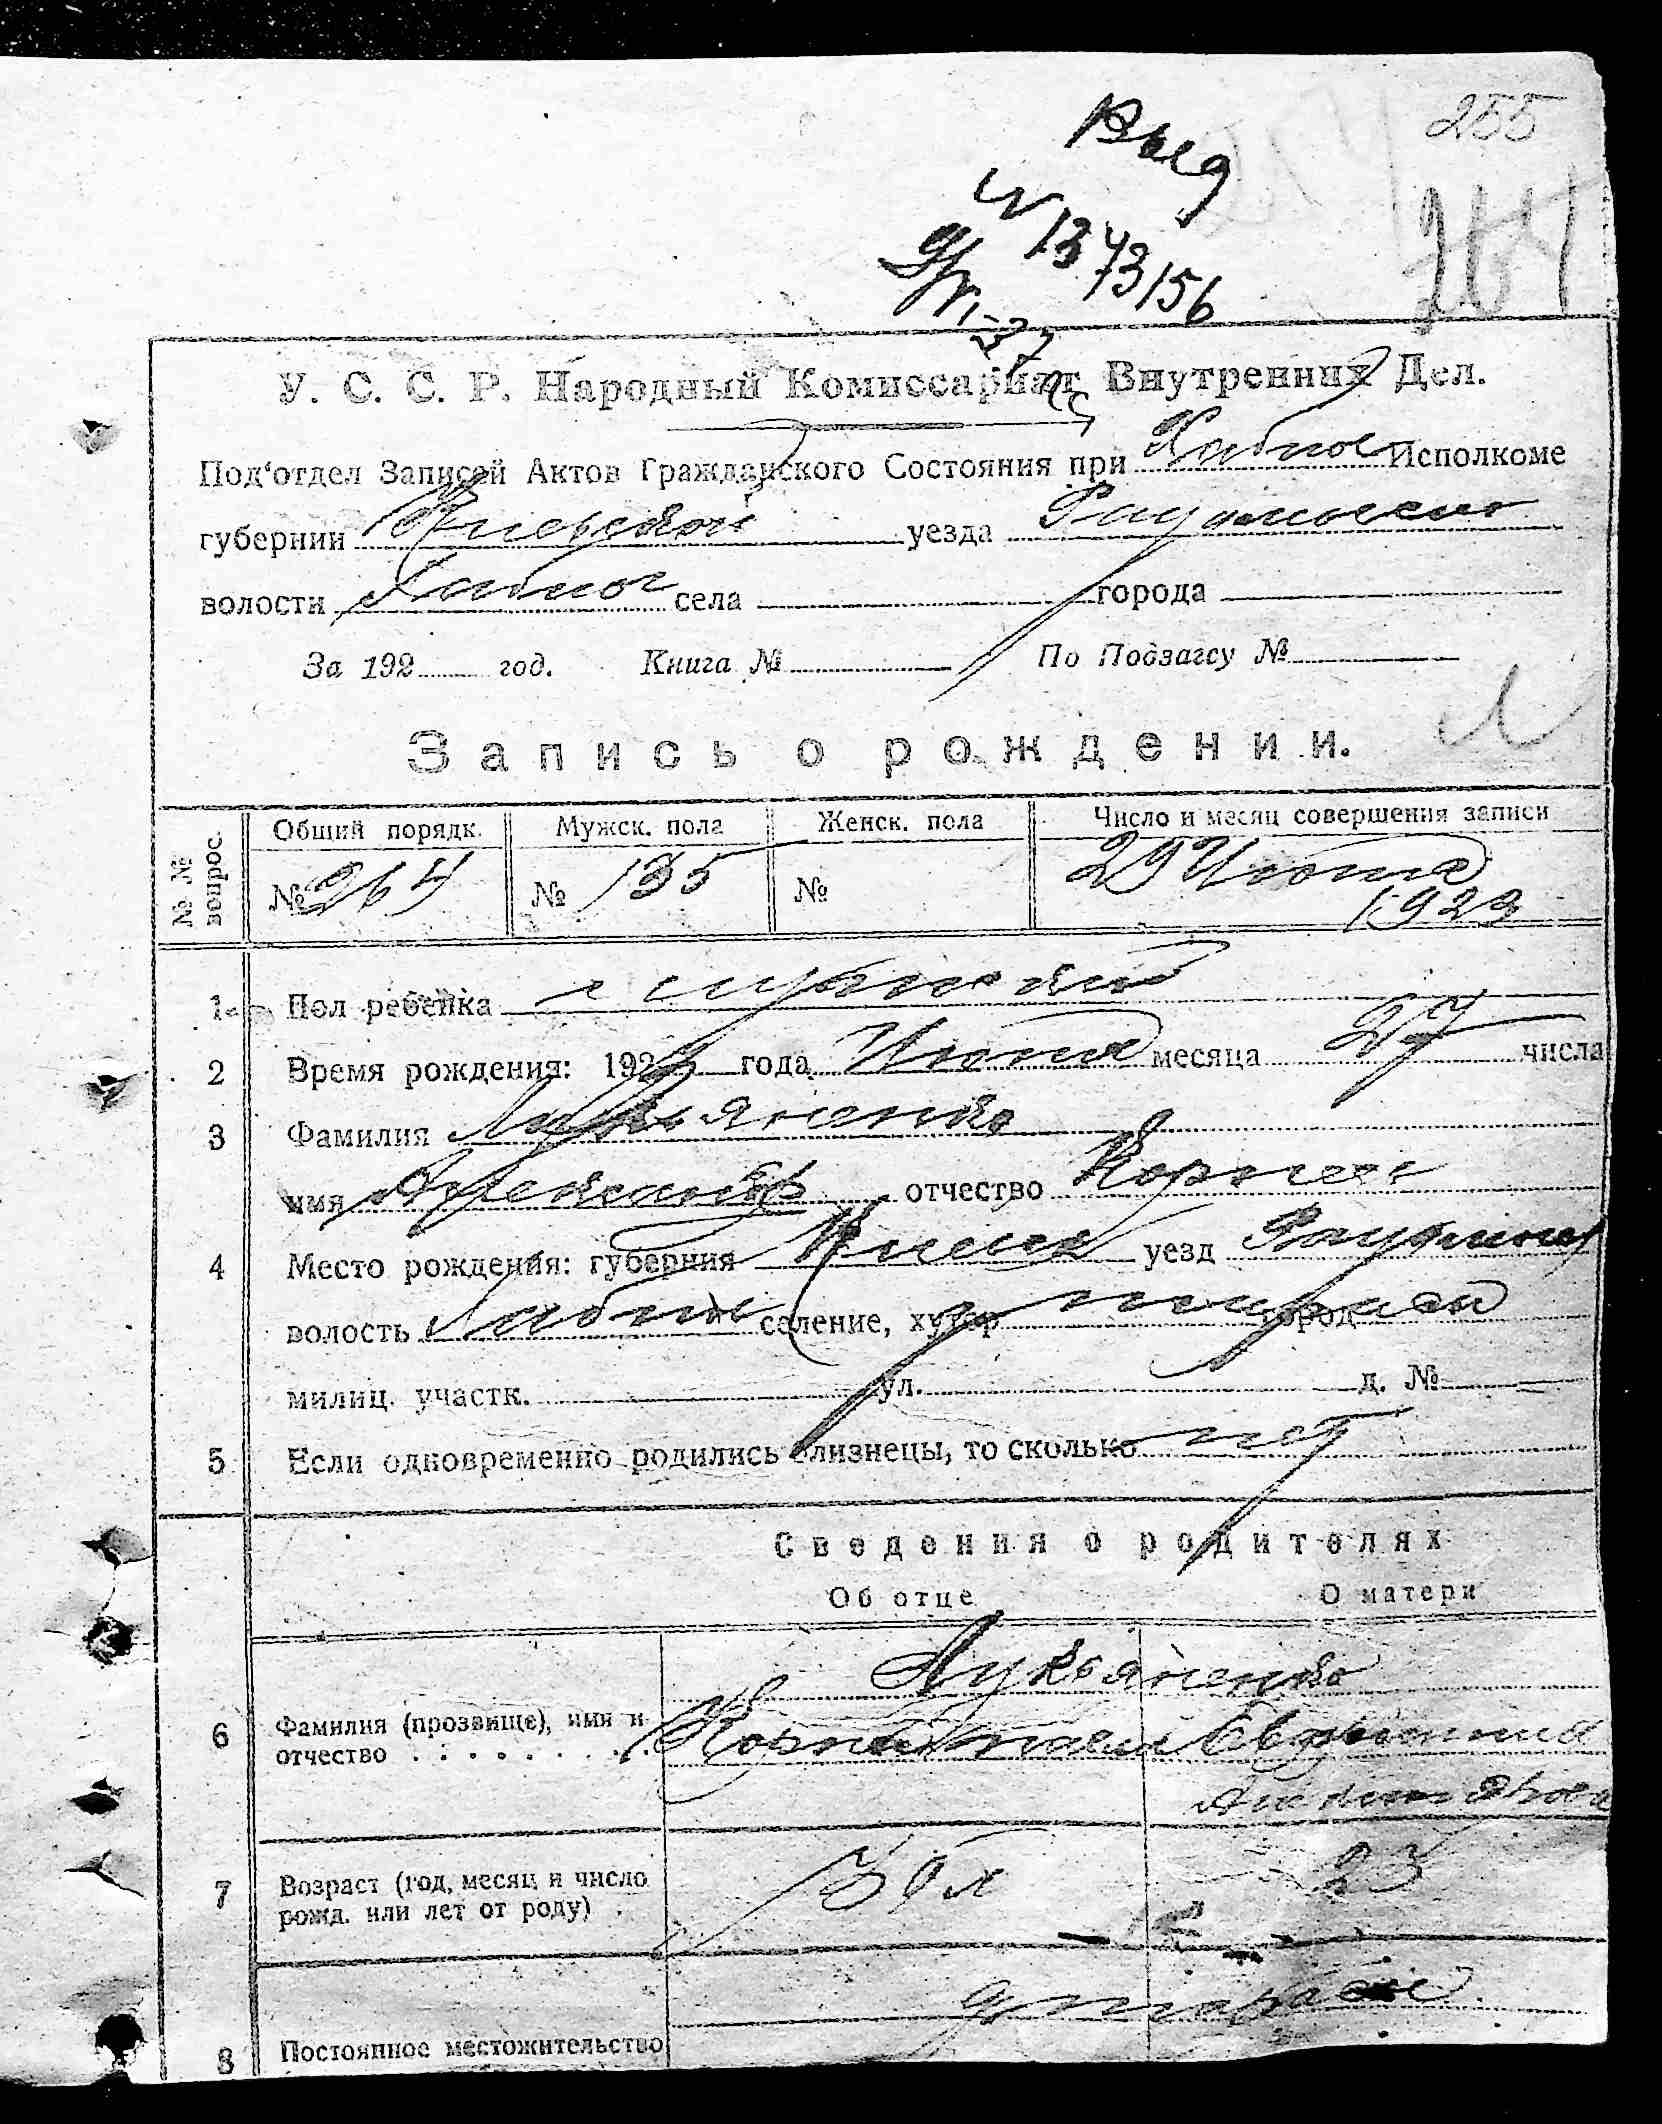 255
Выд
N 1373156
264
У. С. С. Р. Народный Комиссариат Внутренних Дел.
Под‘отдел Записей Актов Гражданского Состояния при Хабное Исполкоме
губернии Киевской уезда
волости Хабное села города
За 192 год. Книга № По Подзагсу №
Запись о рождении.
№ № вопрос. Общий порядк. Мужск. пола Женск. пола Число и месяц совершения записи
№ 264 № 135 № 29 Июня
1923
1 Пол ребенка мужской
2 Время рождения: 1923 года Июня месяца 27 числа
3 Фамилия Лукьяненко
имя Александр отчество Корнеев
4 Место рождения: губерния Киевск уезд
волость Хабное селение, хутор город
милиц. участк. ул. д. №
5 Если одновременно родились близнецы, то сколько нет
Сведения о родителях
Об отце О матери
Лукьяненко
6 Фамилия (прозвище), имя и
отчество
7 Возраст (год, месяц и число
рожд. или лет от роду) 23
8 Постоянное местожительство